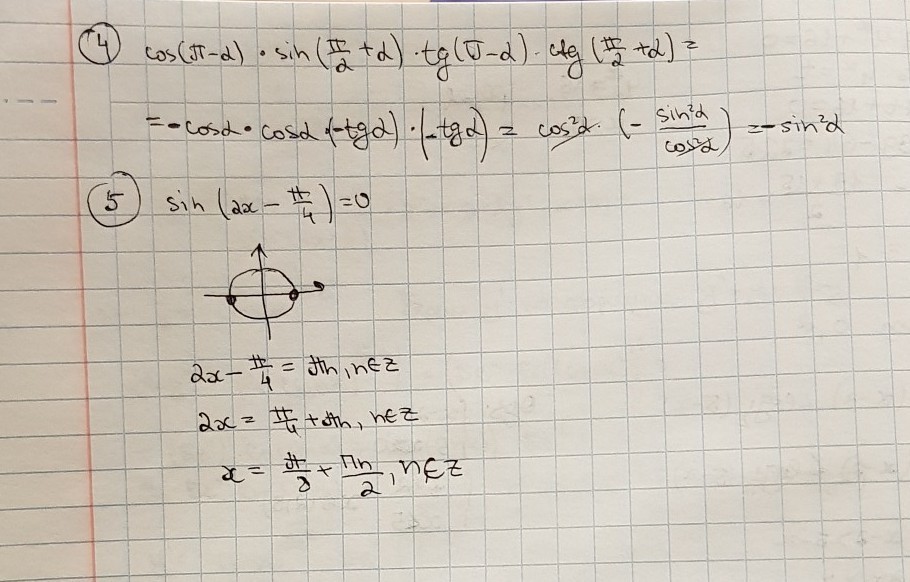 4 cos(π-α) · sin(π/2 + α) · tg(π-α) · ctg(π/2 + α) =
= -cosα · cosα · (-tgα) · (-tgα) = cos²α · (- sin²α/cos²α) = -sin²α
5 sin(2x - π/4) = 0
2x - π/4 = πn, n∈Z
2x = π/4 + πn, n∈Z
x = π/8 + πn/2, n∈Z